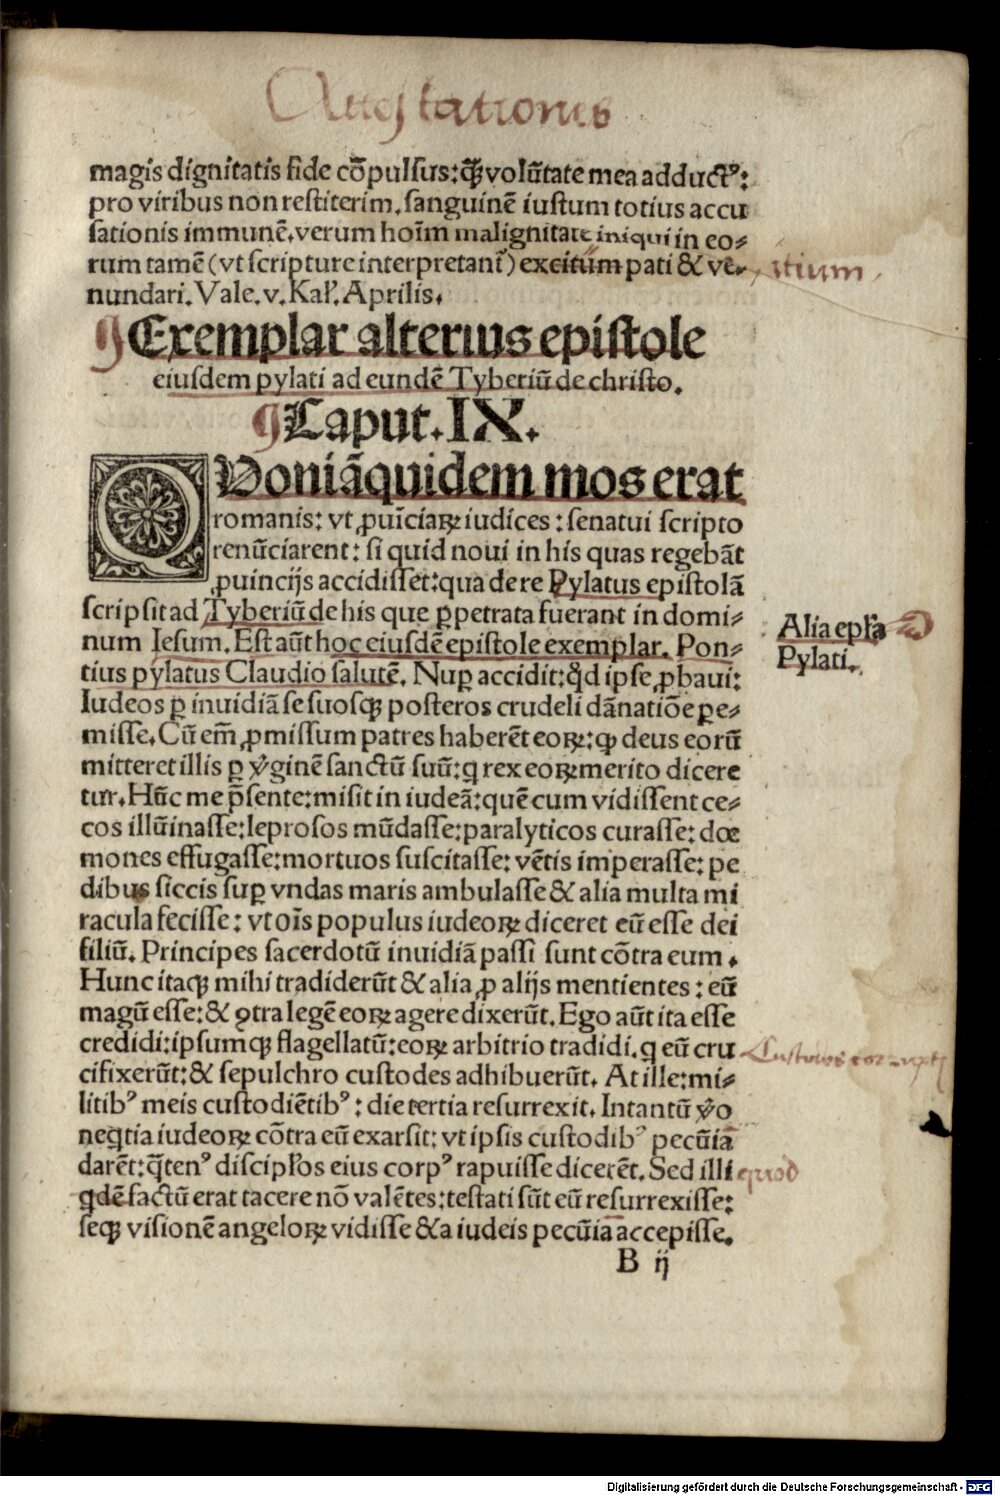 Attestationes
magis dignitatis fide cõpulsus: q̃ꝫ volũtate mea adductꝰ:
pro viribus non restiterim. sanguinẽ iustum totius accu
sationis immunẽ. verum hoĩm malignitate iniqui in eo⸗
rum tamẽ (vt scripture interpretant᷑) excitium pati & ve⸗
itium
nundari. Vale. v. Kal̕. Aprilis.
¶Exemplar alterius epistole
eiusdem pylati ad eundẽ Tyberiũ de christo.
¶Caput. IX.
QVoniãquidem mos erat
romanis: vt ꝓuĩciaꝝ iudices: senatui scripto
renũciarent: si quid noui in his quas regebãt
ꝓuincijs accidisset: qua de re Pylatus epistolã
scripsit ad Tyberiũ de his que ꝑpetrata fuerant in domi⸗
num Iesum. Est aũt hoc eiusdẽ epistole exemplar. Pon⸗
Alia epl̕a
Pylati.
tius pylatus Claudio salutẽ. Nuꝑ accidit: qd̕ ipse ꝓbaui:
Iudeos ꝑ inuidiã se suosqꝫ posteros crudeli dãnatiõe ꝑe⸗
misse. Cũ em̃ ꝓmissum patres haberẽt eoꝝ: ꝙ deus eorũ
mitteret illis ꝑ v̓ginẽ sanctũ suũ: q rex eoꝝ merito dicere
tur. Hũc me p̃sente: misit in iudeã: quẽ cum vidissent ce⸗
cos illũinasse: leprosos mũdasse: paralyticos curasse: dœ
mones effugasse: mortuos suscitasse: vẽtis imperasse: pe
dibus siccis suꝑ vndas maris ambulasse & alia multa mi
racula fecisse: vt oĩs populus iudeoꝝ diceret eũ esse dei
filiũ. Principes sacerdotũ inuidiã passi sunt cõtra eum.
Hunc itaqꝫ mihi tradiderũt & alia ꝓ alijs mentientes: eũ
magũ esse: & ꝯtra legẽ eoꝝ agere dixerũt. Ego aũt ita esse
credidi: ipsumqꝫ flagellatũ: eoꝝ arbitrio tradidi. q eũ cru
Custodes corrupti
cifixerũt: & sepulchro custodes adhibuerũt. At ille: mi⸗
litibꝰ meis custodiẽtibꝰ: die tertia resurrexit. Intantũ v̓o
neq̃tia iudeoꝝ cõtra eũ exarsit: vt ipsis custodibꝰ pecũiã
darẽt: q̃tenꝰ discipl̕os eius corpꝰ rapuisse dicerẽt. Sed illi
quod
qdẽ factũ erat tacere nõ valẽtes: testati sũt eũ resurrexisse:
seqꝫ visionẽ angeloꝝ vidisse & a iudeis pecũiã accepisse.
B ij
Digitalisierung gefördert durch die Deutsche Forschungsgemeinschaft - DFG